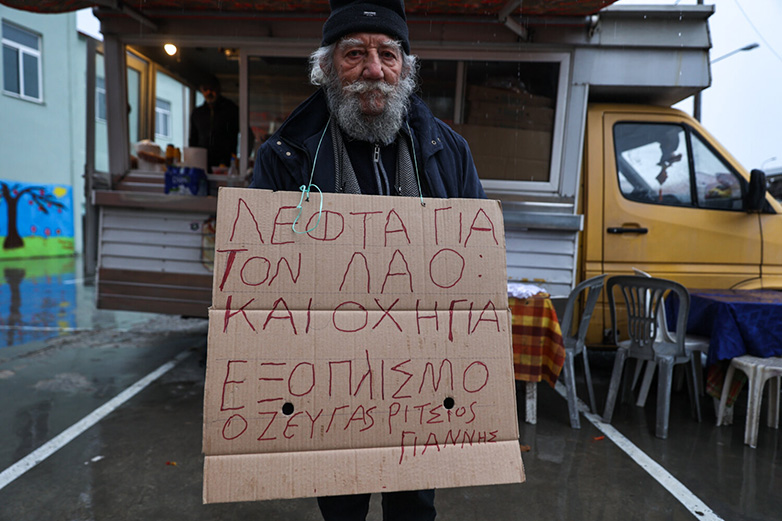 ΛΕΦΤΑ ΓΙΑ
ΤΟΝ ΛΑΟ:
ΚΑΙ ΟΧΗ ΓΙΑ
ΕΞΟΠΛΙΣΜΟ
Ο ΖΕΥΓΑΣ ΡΙΤΣΙΟΣ
ΓΙΑΝΝΗΣ